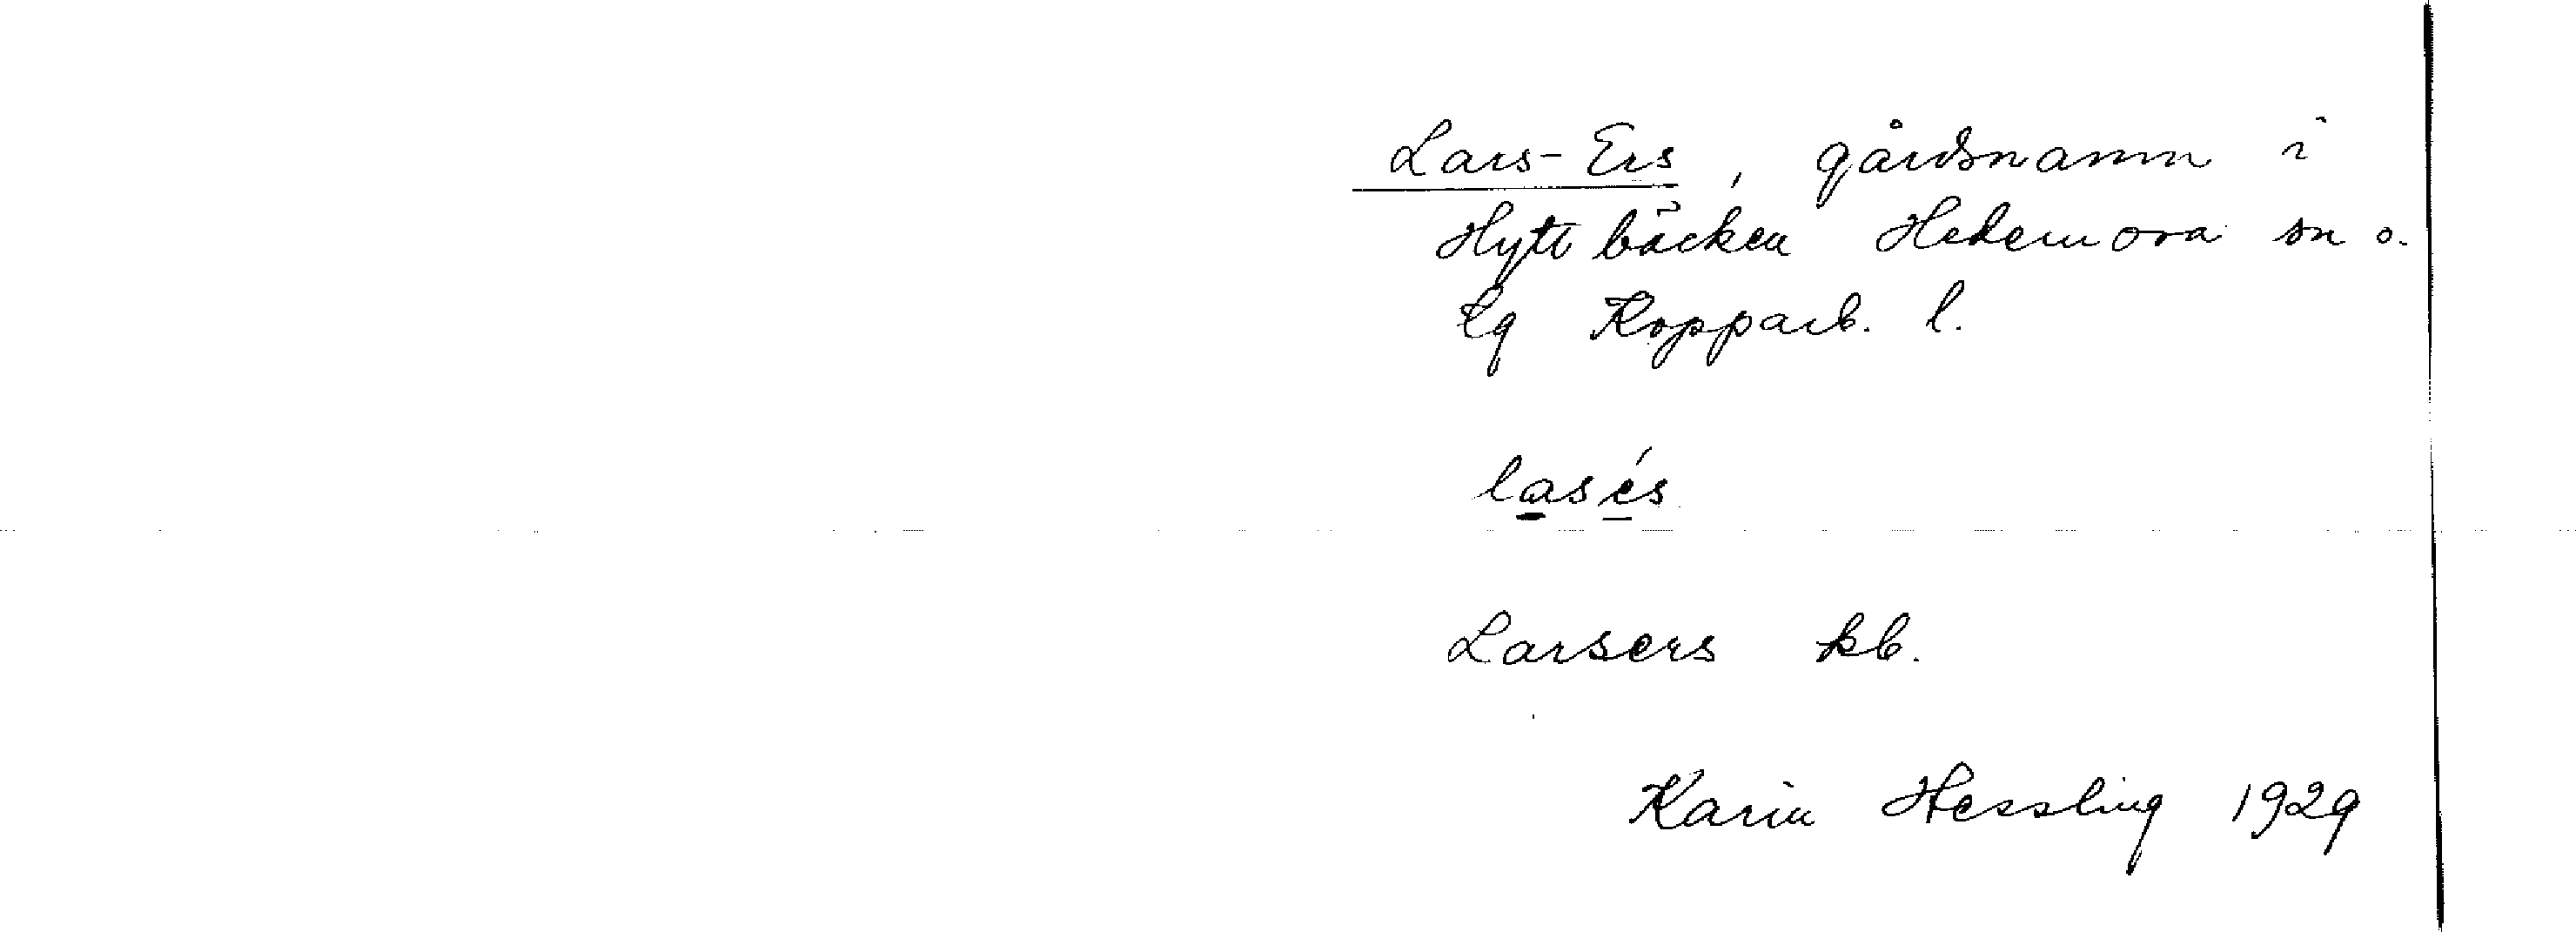 Lars-Ers, gårdsnamn i
Hyttbäcken Hedemora sn o.
tg Kopparb. l.
lasés
Larsers kb.
Karin Hessling 1929